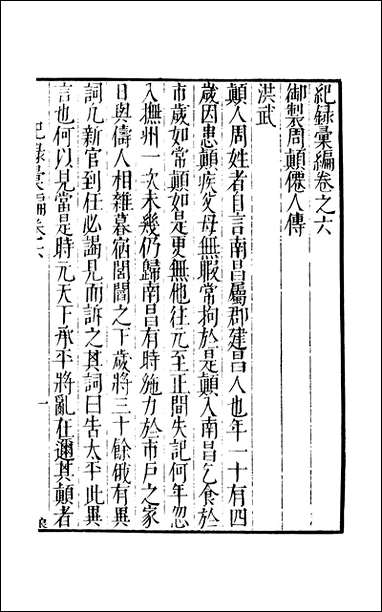 紀録彙編卷之六
御製周顛僊人傳
洪武
顛人周姓者自言南昌屬郡建昌人也年一十有四
歲因患顛疾父母無暇常拘於是顛入南昌乞食於
市歲如常顛如是更無他往元至正間失記何年忽
入撫州一次未幾仍歸南昌有時施力於市戶之家
日與儔人相雜暮宿閭閻之下歲將三十餘俄有異
詞凡新官到任必謁見而訴之其詞曰告太平此異
言也何以見當是時元天下承平將亂在邇其顛者
紀録彙編卷六
一